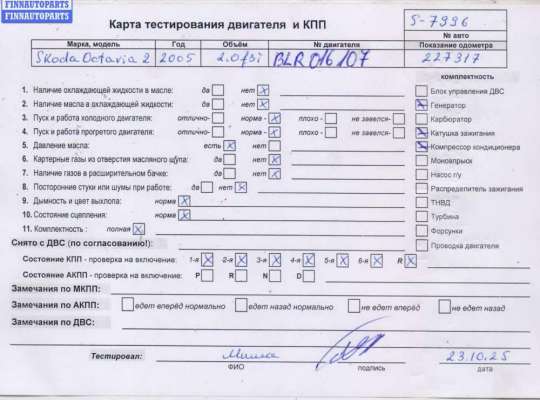 FINNAUTOPARTS
FINNAUTOPARTS
Карта тестирования двигателя и КПП
S-7996
№ авто
Марка, модель Год Объём № двигателя Показание одометра
Skoda Octavia 2 2005 2.0fsi BLR 016107 227317
комплектность
1. Наличие охлаждающей жидкости в масле: да нет X
Блок управления ДВС
2. Наличие масла в охлаждающей жидкости: да нет X
Генератор
3. Пуск и работа холодного двигателя: отлично- норма - X плохо - не завелся-
Карбюратор
4. Пуск и работа прогретого двигателя: отлично- норма - X плохо - не завелся-
Катушка зажигания
5. Давление масла: есть X нет
Компрессор кондиционера
6. Картерные газы из отверстия масляного щупа: да нет X
Моновпрыск
7. Наличие газов в расширительном бачке: да нет X
Насос г/у
8. Посторонние стуки или шумы при работе: да нет X
Распределитель зажигания
9. Дымность и цвет выхлопа: норма X
ТНВД
10. Состояние сцепления: норма X
Турбина
11. Комплектность : полная X
Форсунки
Снято с ДВС (по согласованию!):
Проводка двигателя
Состояние КПП - проверка на включение: 1-я X 2-я X 3-я X 4-я X 5-я X 6-я X R X
Состояние АКПП - проверка на включение: P R N D
Замечания по МКПП:
Замечания по АКПП: едет вперёд нормально едет назад нормально не едет вперёд не едет назад
Замечания по ДВС:
Тестировал: 23.10.25
ФИО подпись дата